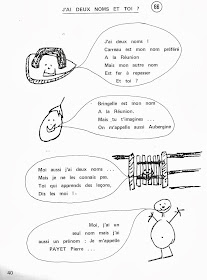 J'AI DEUX NOMS ET TOI ?
J'ai deux noms !
Carreau est mon nom préféré
A la Réunion
Mais mon autre nom
Est fer à repasser
Et toi ?
Bringelle est mon nom
A la Réunion.
Mais tu t'imagines ...
On m'appelle aussi Aubergine
Moi aussi j'ai deux noms ...
Mais je ne les connais pas.
Toi qui apprends des leçons,
Dis les moi !.
Moi, j'ai un
seul nom mais j'ai
aussi un prénom : Je m'appelle
PAYET Pierre ...
40